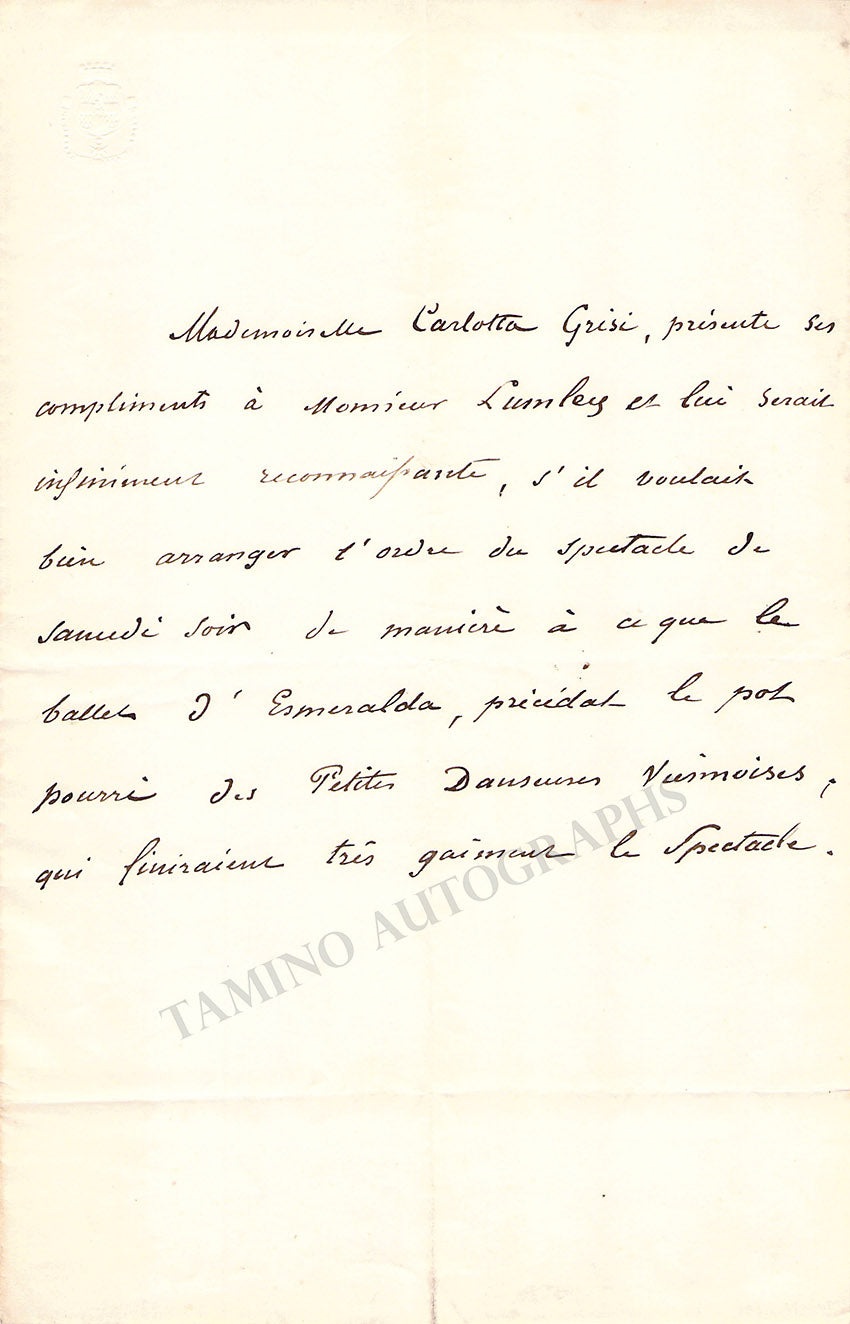 Mademoiselle Carlotta Grisi, présente ses
compliments à Monsieur Lumley et lui serait
infiniment reconnaissante, s'il voulait
bien arranger l'ordre du spectacle de
samedi soir de manière à ce que le
ballet d'Esmeralda, précédat le pot
pourri des Petites Danseuses Viennoises,
qui finiraient très gaiment le Spectacle.
TAMINO AUTOGRAPHS